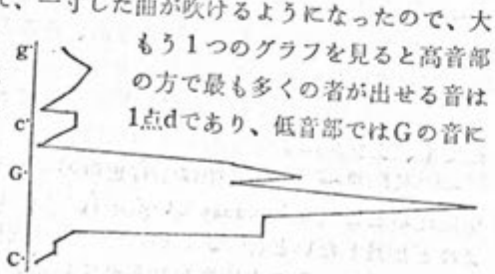 一寸した曲が吹けるようになったので、大
もう1つのグラフを見ると高音部
の方で最も多くの者が出せる音は
1点dであり、低音部ではGの音に
g
c
G
C